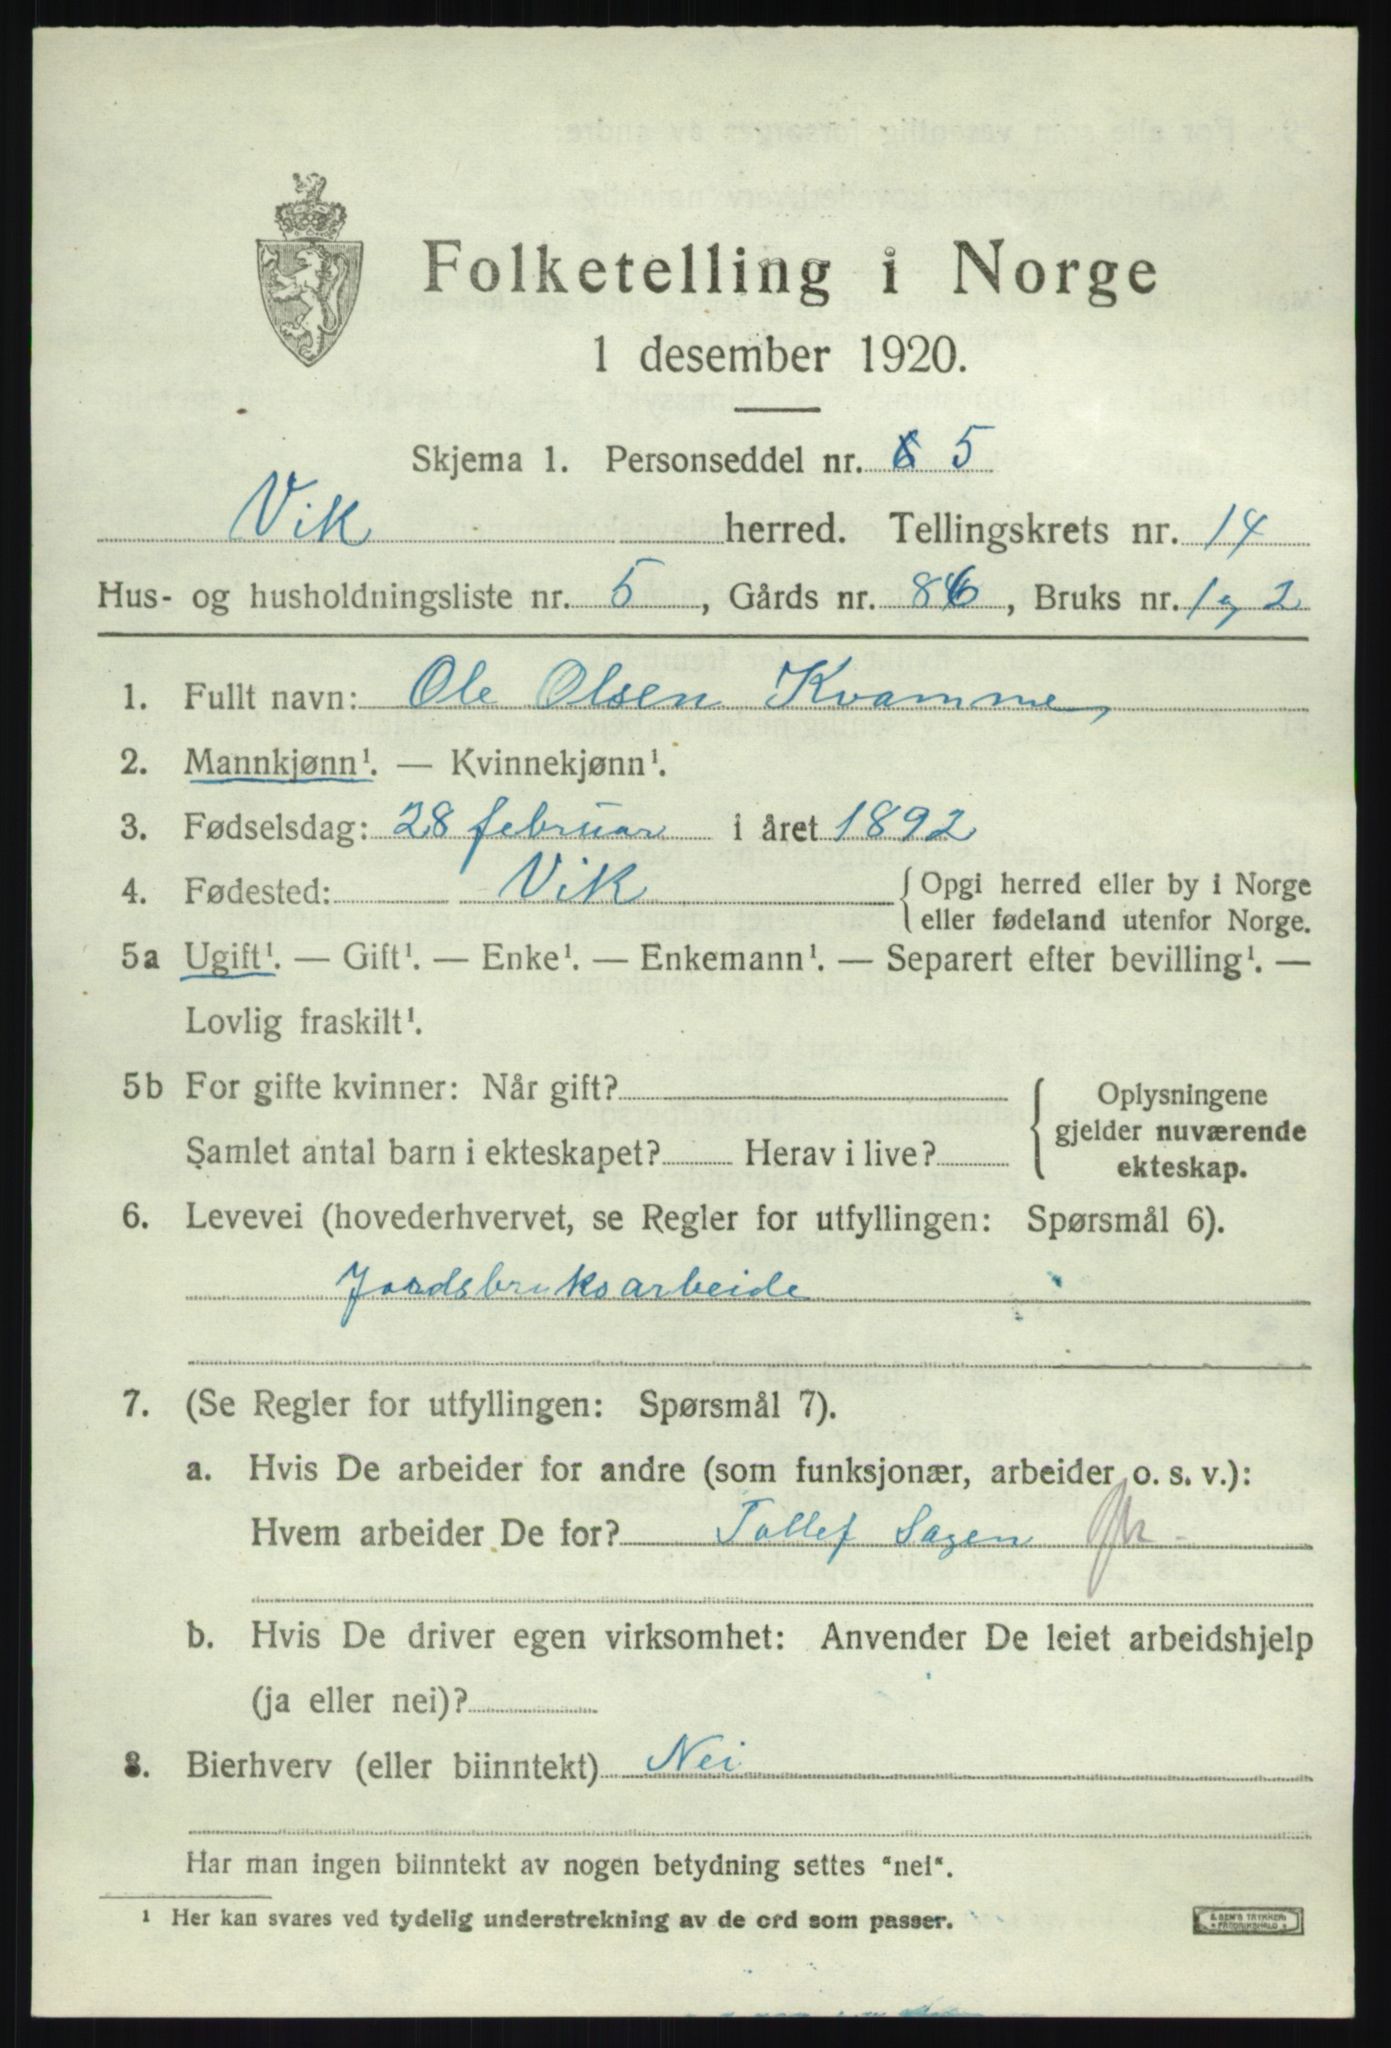 Folketelling i Norge
1 desember 1920.
Skjema 1. Personseddel nr. 5
Vik herred. Tellingskrets nr. 14
Hus- og husholdningsliste nr. 5, Gårds nr. 86, Bruks nr. 1 og 2
1. Fullt navn: Ole Olsen Kvamme,
2. Mannkjønn¹. — Kvinnekjønn¹.
3. Fødselsdag: 28 februar i året 1892
4. Fødested: Vik {Opgi herred eller by i Norge
eller fødeland utenfor Norge.
5a Ugift¹. — Gift¹. — Enke¹. — Enkemann¹. — Separert efter bevilling¹. —
Lovlig fraskilt¹.
5b For gifte kvinner: Når gift? Oplysningene
gjelder nuværende
Samlet antal barn i ekteskapet? Herav i live? ekteskap.
6. Levevei (hovederhvervet, se Regler for utfyllingen: Spørsmål 6).
Jordsbruksarbeide
7. (Se Regler for utfyllingen: Spørsmål 7).
a. Hvis De arbeider for andre (som funksjonær, arbeider o. s. v.):
Hvem arbeider De for? Tollef Sagen
b. Hvis De driver egen virksomhet: Anvender De leiet arbeidshjelp
(ja eller nei)?
8. Bierhverv (eller biinntekt) Nei
Har man ingen biinntekt av nogen betydning settes "nei".
¹ Her kan svares ved tydelig understrekning av de ord som passer.